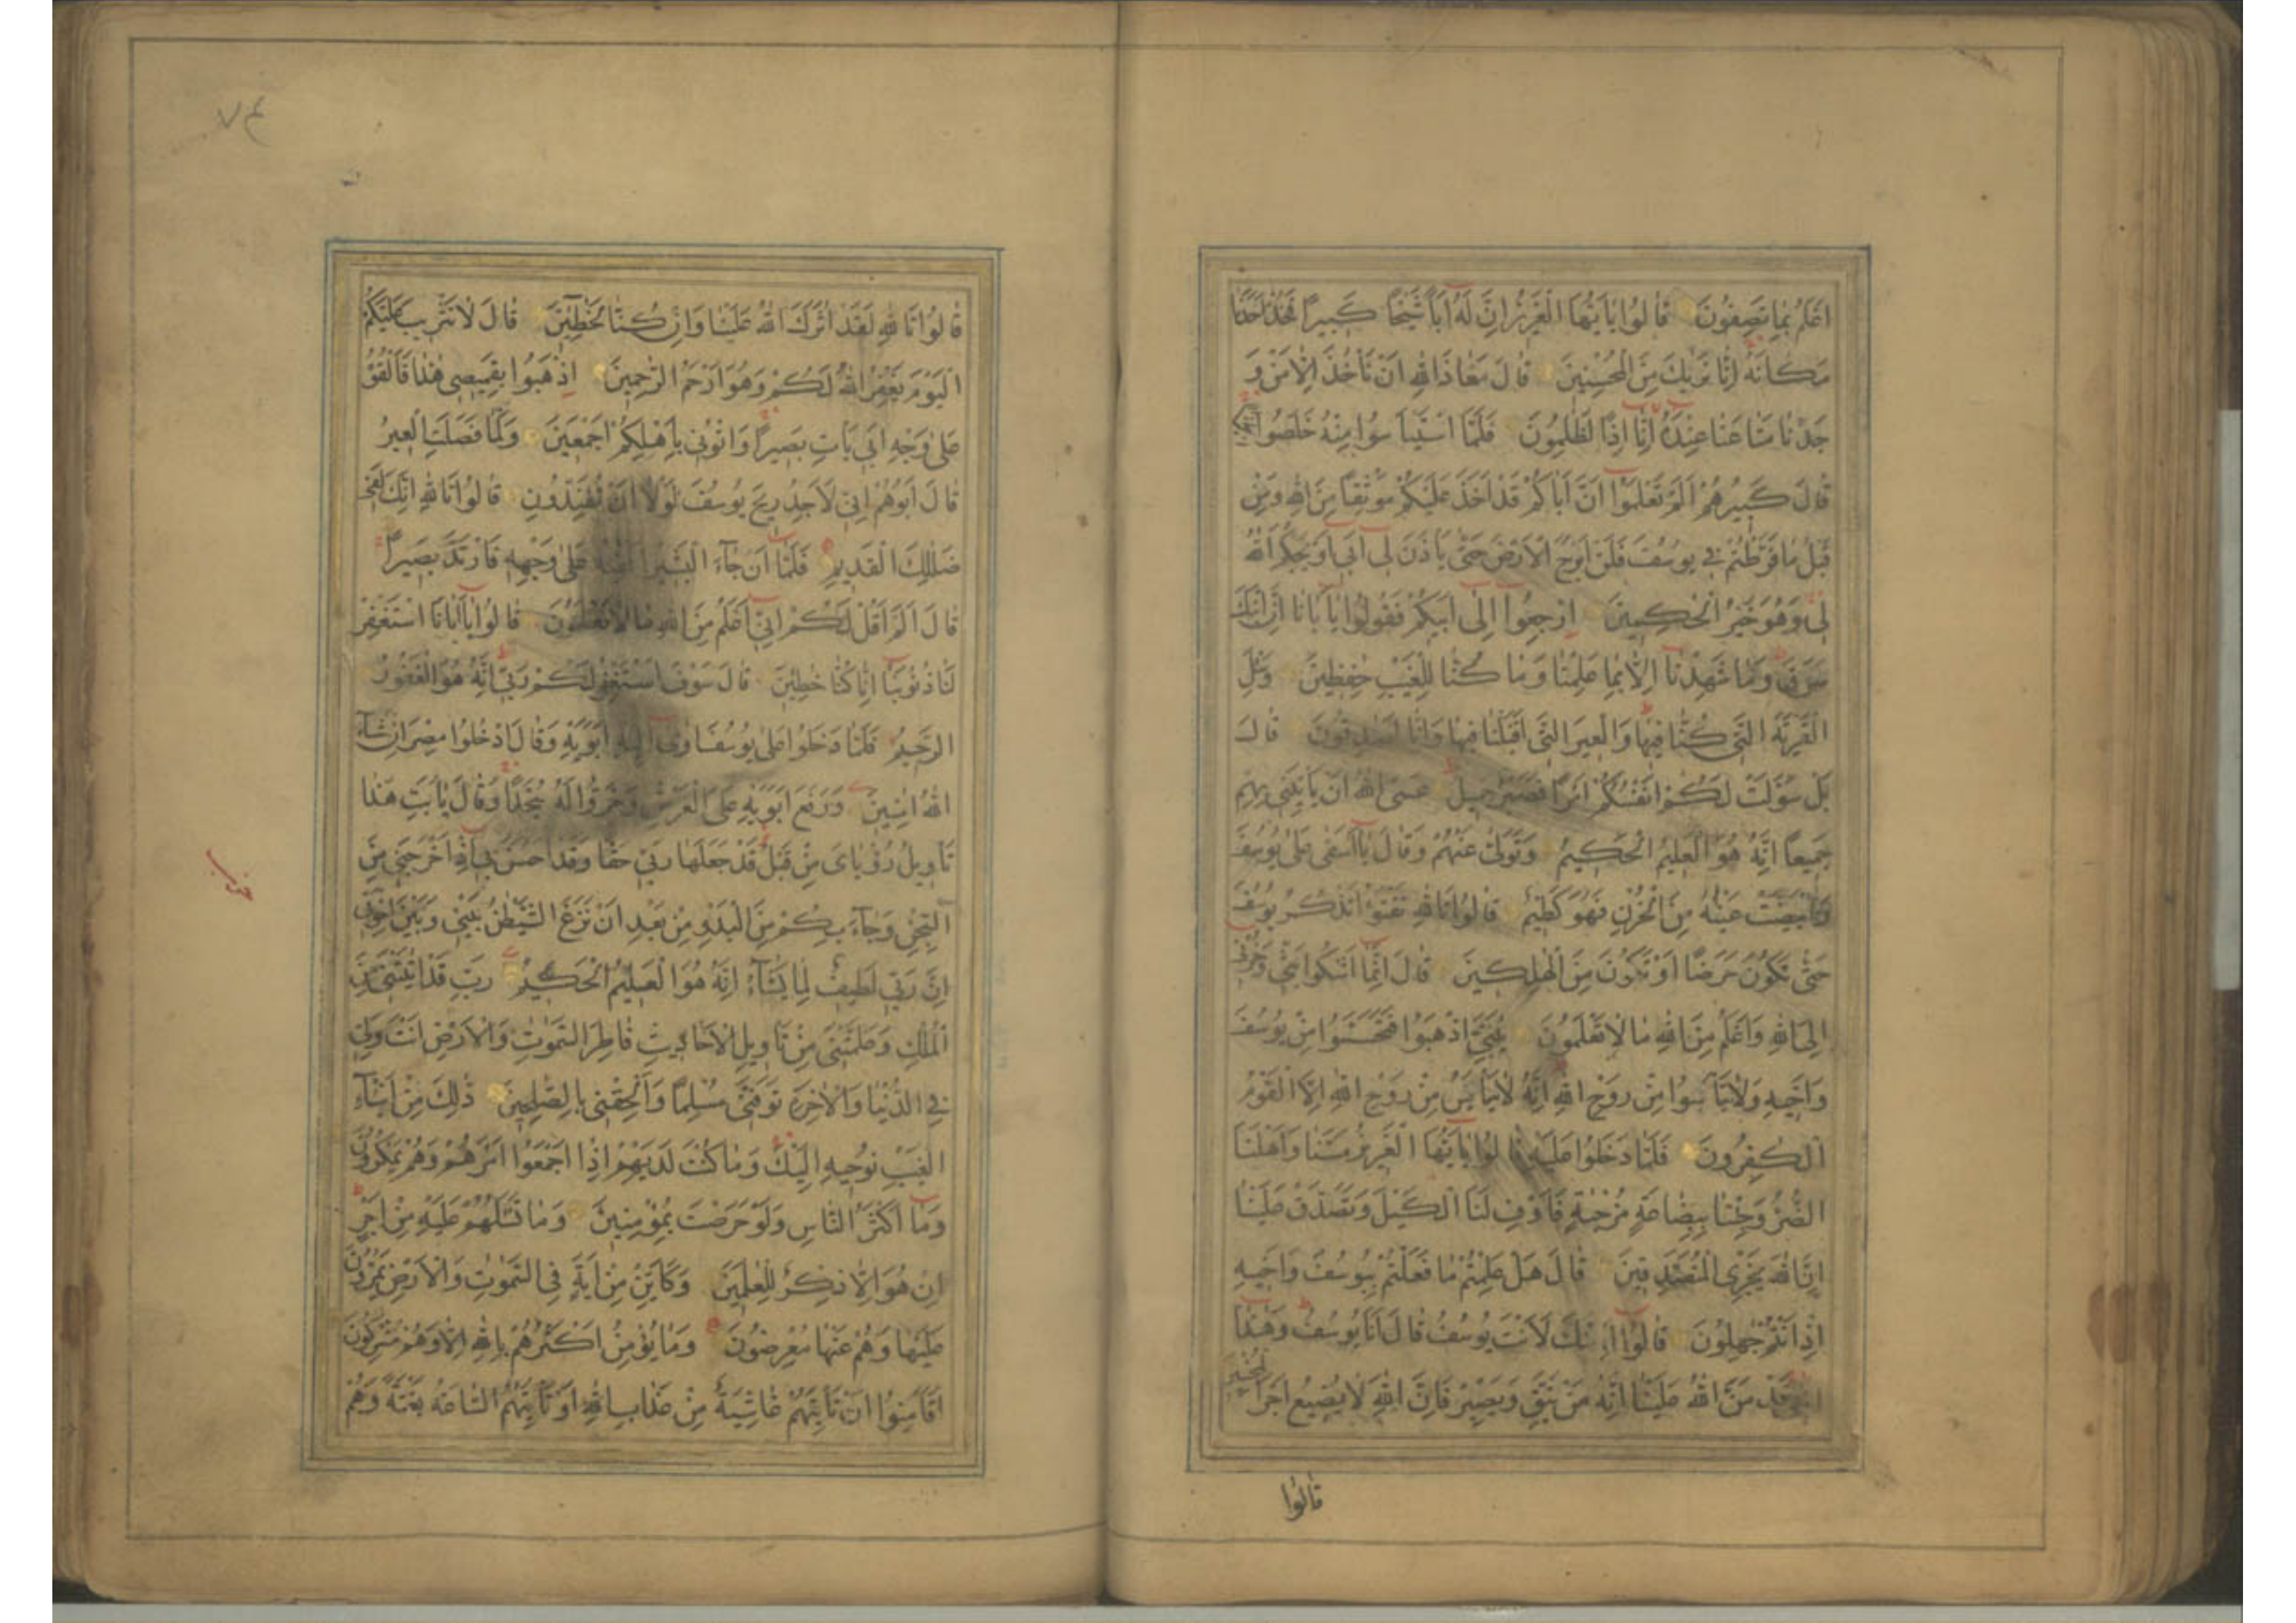 اَعْلَمُ بِمَا تَصِفُونَ قَالُوا يَاۤاَيُّهَا الْعَزِيزُ اِنَّ لَهُٓ اَبًا شَيْخًا كَبِيرًا فَخُذْ اَحَدَنَا
مَكَانَهُ اِنَّا نَرٰيكَ مِنَ الْمُحْسِنِينَ قَالَ مَعَاذَ اللهِ اَنْ نَأْخُذَ اِلَّا مَنْ وَ
جَدْنَا مَتَاعَنَا عِنْدَهُٓ اِنَّٓا اِذًا لَظٰلِمُونَ فَلَمَّا اسْتَيْاَسُوا مِنْهُ خَلَصُوا نَجِيًّا
قَالَ كَبِيرُهُمْ اَلَمْ تَعْلَمُوٓا اَنَّ اَبَاكُمْ قَدْ اَخَذَ عَلَيْكُمْ مَوْثِقًا مِنَ اللهِ وَمِنْ
قَبْلُ مَا فَرَّطْتُمْ فِي يُوسُفَ فَلَنْ اَبْرَحَ الْاَرْضَ حَتّٰى يَاْذَنَ لِٓي اَبِٓي اَوْ يَحْكُمَ اللهُ
لِي وَهُوَ خَيْرُ الْحٰكِمِينَ اِرْجِعُوٓا اِلٰٓى اَبِيكُمْ فَقُولُوا يَٓا اَبَانَٓا اِنَّ ابْنَكَ
سَرَقَ وَمَا شَهِدْنَٓا اِلَّا بِمَا عَلِمْنَا وَمَا كُنَّا لِلْغَيْبِ حٰفِظِينَ وَسْئَلِ
الْقَرْيَةَ الَّتِي كُنَّا فِيهَا وَالْعِيرَ الَّتِٓي اَقْبَلْنَا فِيهَا وَاِنَّا لَصٰدِقُونَ قَالَ
بَلْ سَوَّلَتْ لَكُمْ اَنْفُسُكُمْ اَمْرًا فَصَبْرٌ جَمِيلٌ عَسَى اللهُ اَنْ يَاْتِيَنِي بِهِمْ
جَمِيعًا اِنَّهُ هُوَ الْعَلِيمُ الْحَكِيمُ وَتَوَلّٰى عَنْهُمْ وَقَالَ يَٓا اَسَفٰى عَلٰى يُوسُفَ
وَابْيَضَّتْ عَيْنٰهُ مِنَ الْحُزْنِ فَهُوَ كَظِيمٌ قَالُوا تَاللهِ تَفْتَؤُا تَذْكُرُ يُوسُفَ
حَتّٰى تَكُونَ حَرَضًا اَوْ تَكُونَ مِنَ الْهٰلِكِينَ قَالَ اِنَّمَٓا اَشْكُوا بَثِّي وَحُزْنِٓي
اِلَى اللهِ وَاَعْلَمُ مِنَ اللهِ مَا لَا تَعْلَمُونَ يٰبَنِيَّ اذْهَبُوا فَتَحَسَّسُوا مِنْ يُوسُفَ
وَاَخِيهِ وَلَا تَايْـَٔسُوا مِنْ رَوْحِ اللهِ اِنَّهُ لَا يَايْـَٔسُ مِنْ رَوْحِ اللهِ اِلَّا الْقَوْمُ
الْكٰفِرُونَ فَلَمَّا دَخَلُوا عَلَيْهِ قَالُوا يَٓا اَيُّهَا الْعَزِيزُ مَسَّنَا وَاَهْلَنَا
الضُّرُّ وَجِئْنَا بِبِضَاعَةٍ مُزْجٰيةٍ فَاَوْفِ لَنَا الْكَيْلَ وَتَصَدَّقْ عَلَيْنَا
اِنَّ اللهَ يَجْزِي الْمُتَصَدِّقِينَ قَالَ هَلْ عَلِمْتُمْ مَا فَعَلْتُمْ بِيُوسُفَ وَاَخِيهِ
اِذْ اَنْتُمْ جٰهِلُونَ قَالُوٓا اَئِنَّكَ لَاَنْتَ يُوسُفُ قَالَ اَنَا يُوسُفُ وَهٰذَٓا
اَخِي قَدْ مَنَّ اللهُ عَلَيْنَا اِنَّهُ مَنْ يَتَّقِ وَيَصْبِرْ فَاِنَّ اللهَ لَا يُضِيعُ اَجْرَ الْمُحْسِنِينَ
قَالُوا
قَالُوا تَاللهِ لَقَدْ اٰثَرَكَ اللهُ عَلَيْنَا وَاِنْ كُنَّا لَخٰطِئِينَ قَالَ لَا تَثْرِيبَ عَلَيْكُمُ
الْيَوْمَ يَغْفِرُ اللهُ لَكُمْ وَهُوَ اَرْحَمُ الرّٰحِمِينَ اِذْهَبُوا بِقَمِيصِي هٰذَا فَاَلْقُوهُ
عَلٰى وَجْهِ اَبِي يَاْتِ بَصِيرًا وَاْتُونِي بِاَهْلِكُمْ اَجْمَعِينَ وَلَمَّا فَصَلَتِ الْعِيرُ
قَالَ اَبُوهُمْ اِنِّي لَاَجِدُ رِيحَ يُوسُفَ لَوْلَٓا اَنْ تُفَنِّدُونِ قَالُوا تَاللهِ اِنَّكَ لَفِي
ضَلٰلِكَ الْقَدِيمِ فَلَمَّٓا اَنْ جَٓاءَ الْبَشِيرُ اَلْقٰيهُ عَلٰى وَجْهِهِ فَارْتَدَّ بَصِيرًا
قَالَ اَلَمْ اَقُلْ لَكُمْ اِنِّٓي اَعْلَمُ مِنَ اللهِ مَا لَا تَعْلَمُونَ قَالُوا يَٓا اَبَانَا اسْتَغْفِرْ
لَنَا ذُنُوبَنَٓا اِنَّا كُنَّا خٰطِئِينَ قَالَ سَوْفَ اَسْتَغْفِرُ لَكُمْ رَبِّي اِنَّهُ هُوَ الْغَفُورُ
الرَّحِيمُ فَلَمَّا دَخَلُوا عَلٰى يُوسُفَ اٰوٰٓى اِلَيْهِ اَبَوَيْهِ وَقَالَ ادْخُلُوا مِصْرَ اِنْ شَٓاءَ
اللهُ اٰمِنِينَ وَرَفَعَ اَبَوَيْهِ عَلَى الْعَرْشِ وَخَرُّوا لَهُ سُجَّدًا وَقَالَ يَٓا اَبَتِ هٰذَا
تَاْوِيلُ رُؤْيَايَ مِنْ قَبْلُ قَدْ جَعَلَهَا رَبِّي حَقًّا وَقَدْ اَحْسَنَ بِٓي اِذْ اَخْرَجَنِي مِنَ
السِّجْنِ وَجَٓاءَ بِكُمْ مِنَ الْبَدْوِ مِنْ بَعْدِ اَنْ نَزَغَ الشَّيْطٰنُ بَيْنِي وَبَيْنَ اِخْوَتِي
اِنَّ رَبِّي لَطِيفٌ لِمَا يَشَٓاءُ اِنَّهُ هُوَ الْعَلِيمُ الْحَكِيمُ رَبِّ قَدْ اٰتَيْتَنِي مِنَ
الْمُلْكِ وَعَلَّمْتَنِي مِنْ تَاْوِيلِ الْاَحَادِيثِ فَاطِرَ السَّمٰوٰتِ وَالْاَرْضِ اَنْتَ وَلِيِّ
فِي الدُّنْيَا وَالْاٰخِرَةِ تَوَفَّنِي مُسْلِمًا وَاَلْحِقْنِي بِالصّٰلِحِينَ ذٰلِكَ مِنْ اَنْبَٓاءِ
الْغَيْبِ نُوحِيهِ اِلَيْكَ وَمَا كُنْتَ لَدَيْهِمْ اِذْ اَجْمَعُوٓا اَمْرَهُمْ وَهُمْ يَمْكُرُونَ
وَمَٓا اَكْثَرُ النَّاسِ وَلَوْ حَرَصْتَ بِمُؤْمِنِينَ وَمَا تَسْئَلُهُمْ عَلَيْهِ مِنْ اَجْرٍ
اِنْ هُوَ اِلَّا ذِكْرٌ لِلْعٰلَمِينَ وَكَاَيِّنْ مِنْ اٰيَةٍ فِي السَّمٰوٰتِ وَالْاَرْضِ يَمُرُّونَ
عَلَيْهَا وَهُمْ عَنْهَا مُعْرِضُونَ وَمَا يُؤْمِنُ اَكْثَرُهُمْ بِاللهِ اِلَّا وَهُمْ مُشْرِكُونَ
اَفَاَمِنُوٓا اَنْ تَاْتِيَهُمْ غَاشِيَةٌ مِنْ عَذَابِ اللهِ اَوْ تَاْتِيَهُمُ السَّاعَةُ بَغْتَةً وَهُمْ
حزب